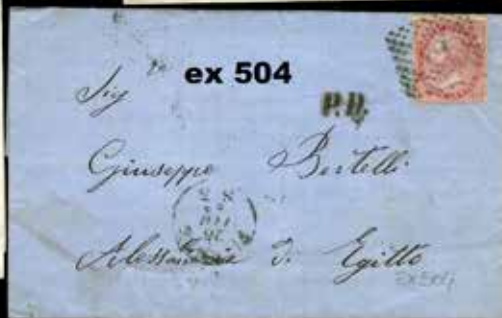 ex 504
Sig
P.D.
Giuseppe Bertelli
Alessandria d. Egitto
ex 504